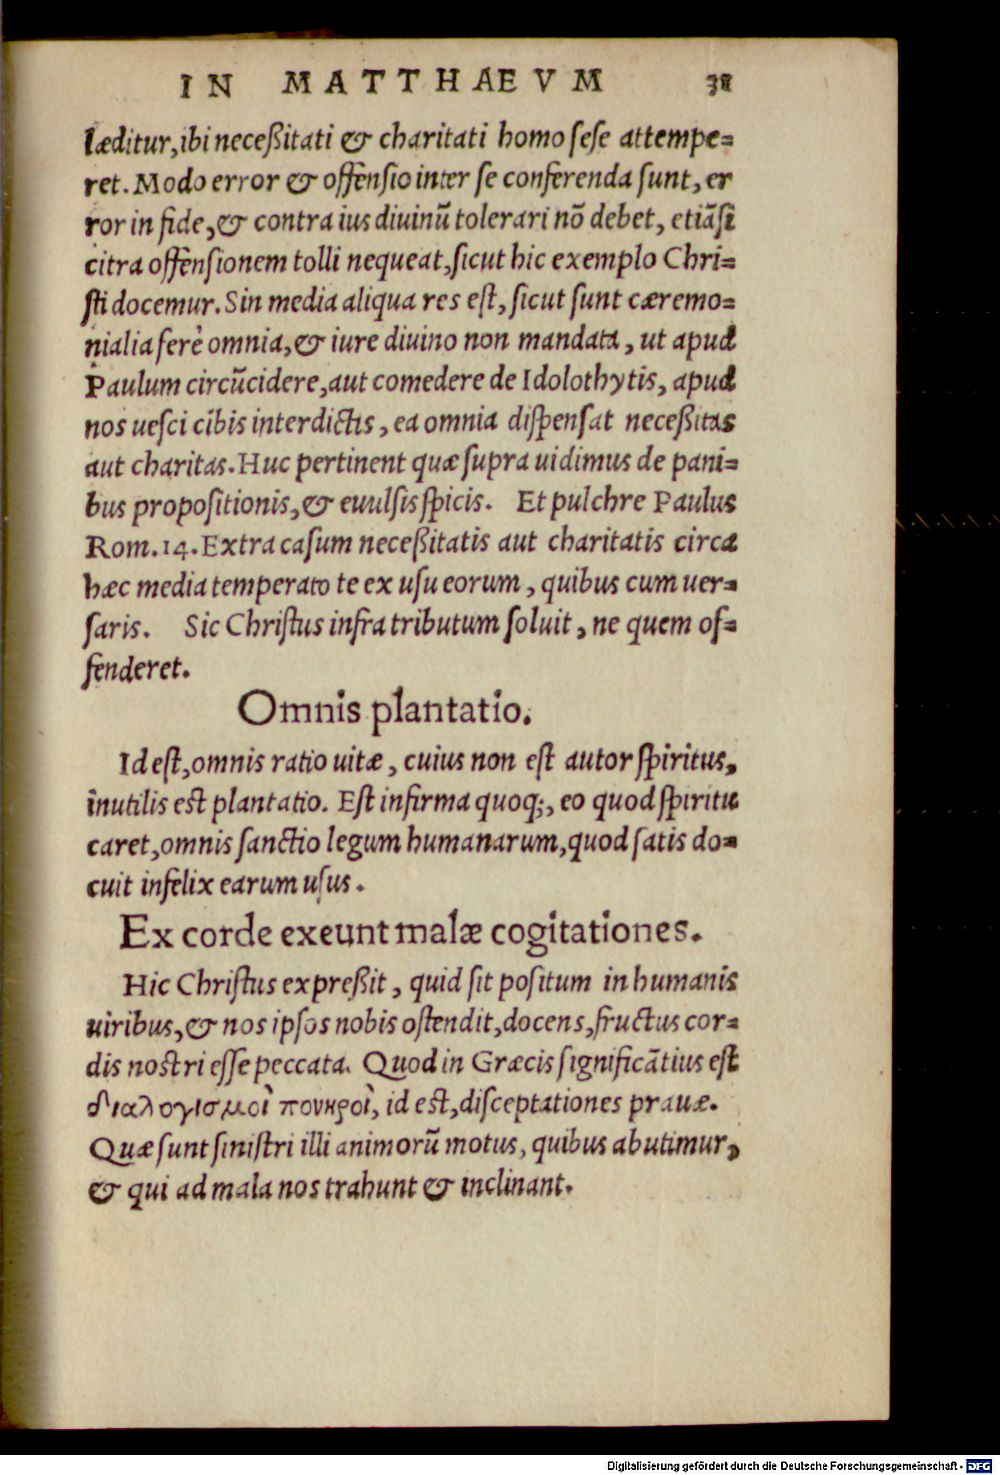 IN MATTHAEVM 38
læditur, ibi neceßitati & charitati homo ſeſe attempe=
ret. Modo error & offenſio inter ſe conferenda ſunt, er
ror in fide, & contra ius diuinū tolerari nō debet, etiāſi
citra offenſionem tolli nequeat, ſicut hic exemplo Chri=
ſti docemur. Sin media aliqua res eſt, ſicut ſunt cæremo=
nialia ferè omnia, & iure diuino non mandata, ut apud
Paulum circūcidere, aut comedere de Idolothytis, apud
nos ueſci cibis interdictis, ea omnia diſpenſat neceßitas
aut charitas. Huc pertinent quæ ſupra uidimus de pani=
bus propoſitionis, & euulſis ſpicis. Et pulchre Paulus
Rom. 14. Extra caſum neceßitatis aut charitatis circa
hæc media temperato te ex uſu eorum, quibus cum uer=
ſaris. Sic Chriſtus infra tributum ſoluit, ne quem of=
fenderet.
Omnis plantatio.
Id eſt, omnis ratio uitæ, cuius non eſt autor ſpiritus,
inutilis est plantatio. Eſt infirma quoq;, eo quod ſpiritu
caret, omnis ſanctio legum humanarum, quod ſatis do=
cuit infelix earum uſus.
Ex corde exeunt malæ cogitationes.
Hic Chriſtus expreßit, quid ſit poſitum in humanis
uiribus, & nos ipſos nobis oſtendit, docens, fructus cor=
dis noſtri eſſe peccata. Quod in Græcis ſignificātius eſt
διαλογισμοὶ πονηροὶ, id eſt, diſceptationes prauæ.
Quæ ſunt ſiniſtri illi animorū motus, quibus abutimur,
& qui ad mala nos trahunt & inclinant.
Digitalisierung gefördert durch die Deutsche Forschungsgemeinschaft - DFG